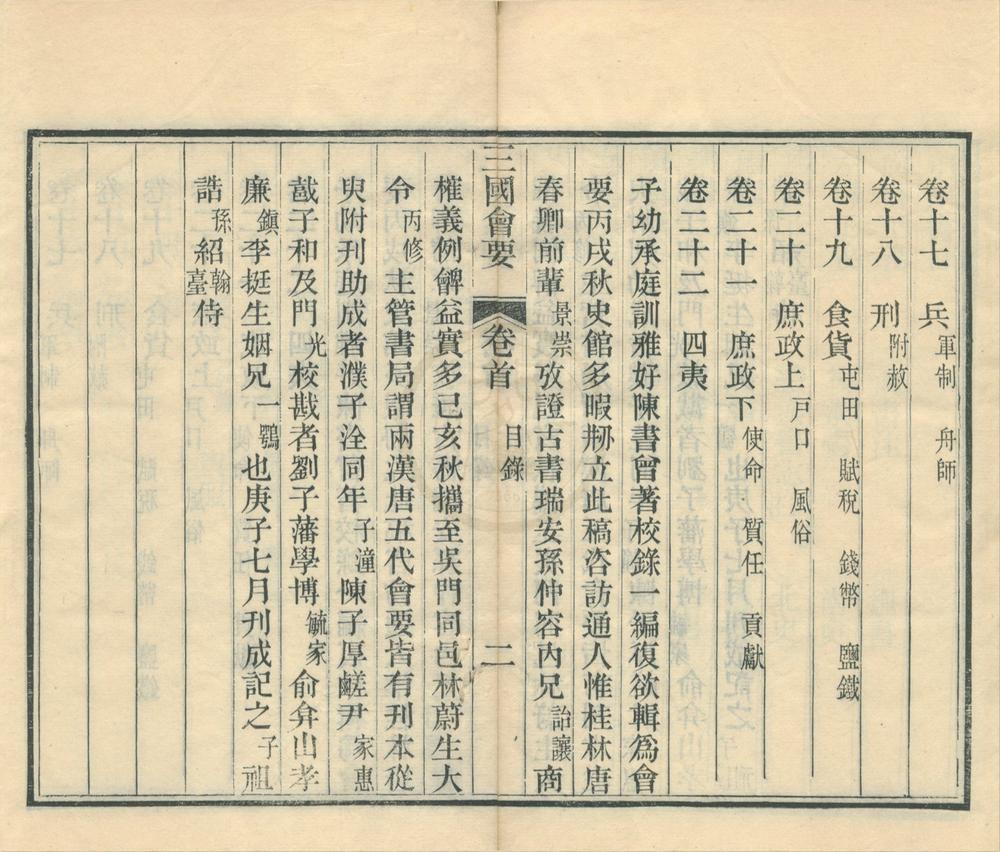 卷十七　兵　軍制　舟師
卷十八　刑　附赦
卷十九　食貨　屯田　賦稅　錢幣　鹽鐵
卷二十　庶政上　戸口　風俗
卷二十一　庶政下　使命　質任　貢獻
卷二十二　四夷
子幼承庭訓雅好陳書曾著校錄一編復欲輯爲會
要丙戌秋史館多暇剏立此稿咨訪通人惟桂林唐
春卿前輩景崇攷證古書瑞安孫仲容內兄詒讓商
三國會要　卷首　目錄　二
榷義例裨益實多己亥秋攜至吳門同邑林蔚生大
令丙修主管書局謂兩漢唐五代會要皆有刊本從
臾附刊助成者濮子泠同年子潼陳子厚鹺尹家惠
葢子和及門光校戡者劉子藩學博毓家俞弅山孝
廉鎮李挺生姻兄一鶚也庚子七月刊成記之子祖
誥孫紹翰臺侍